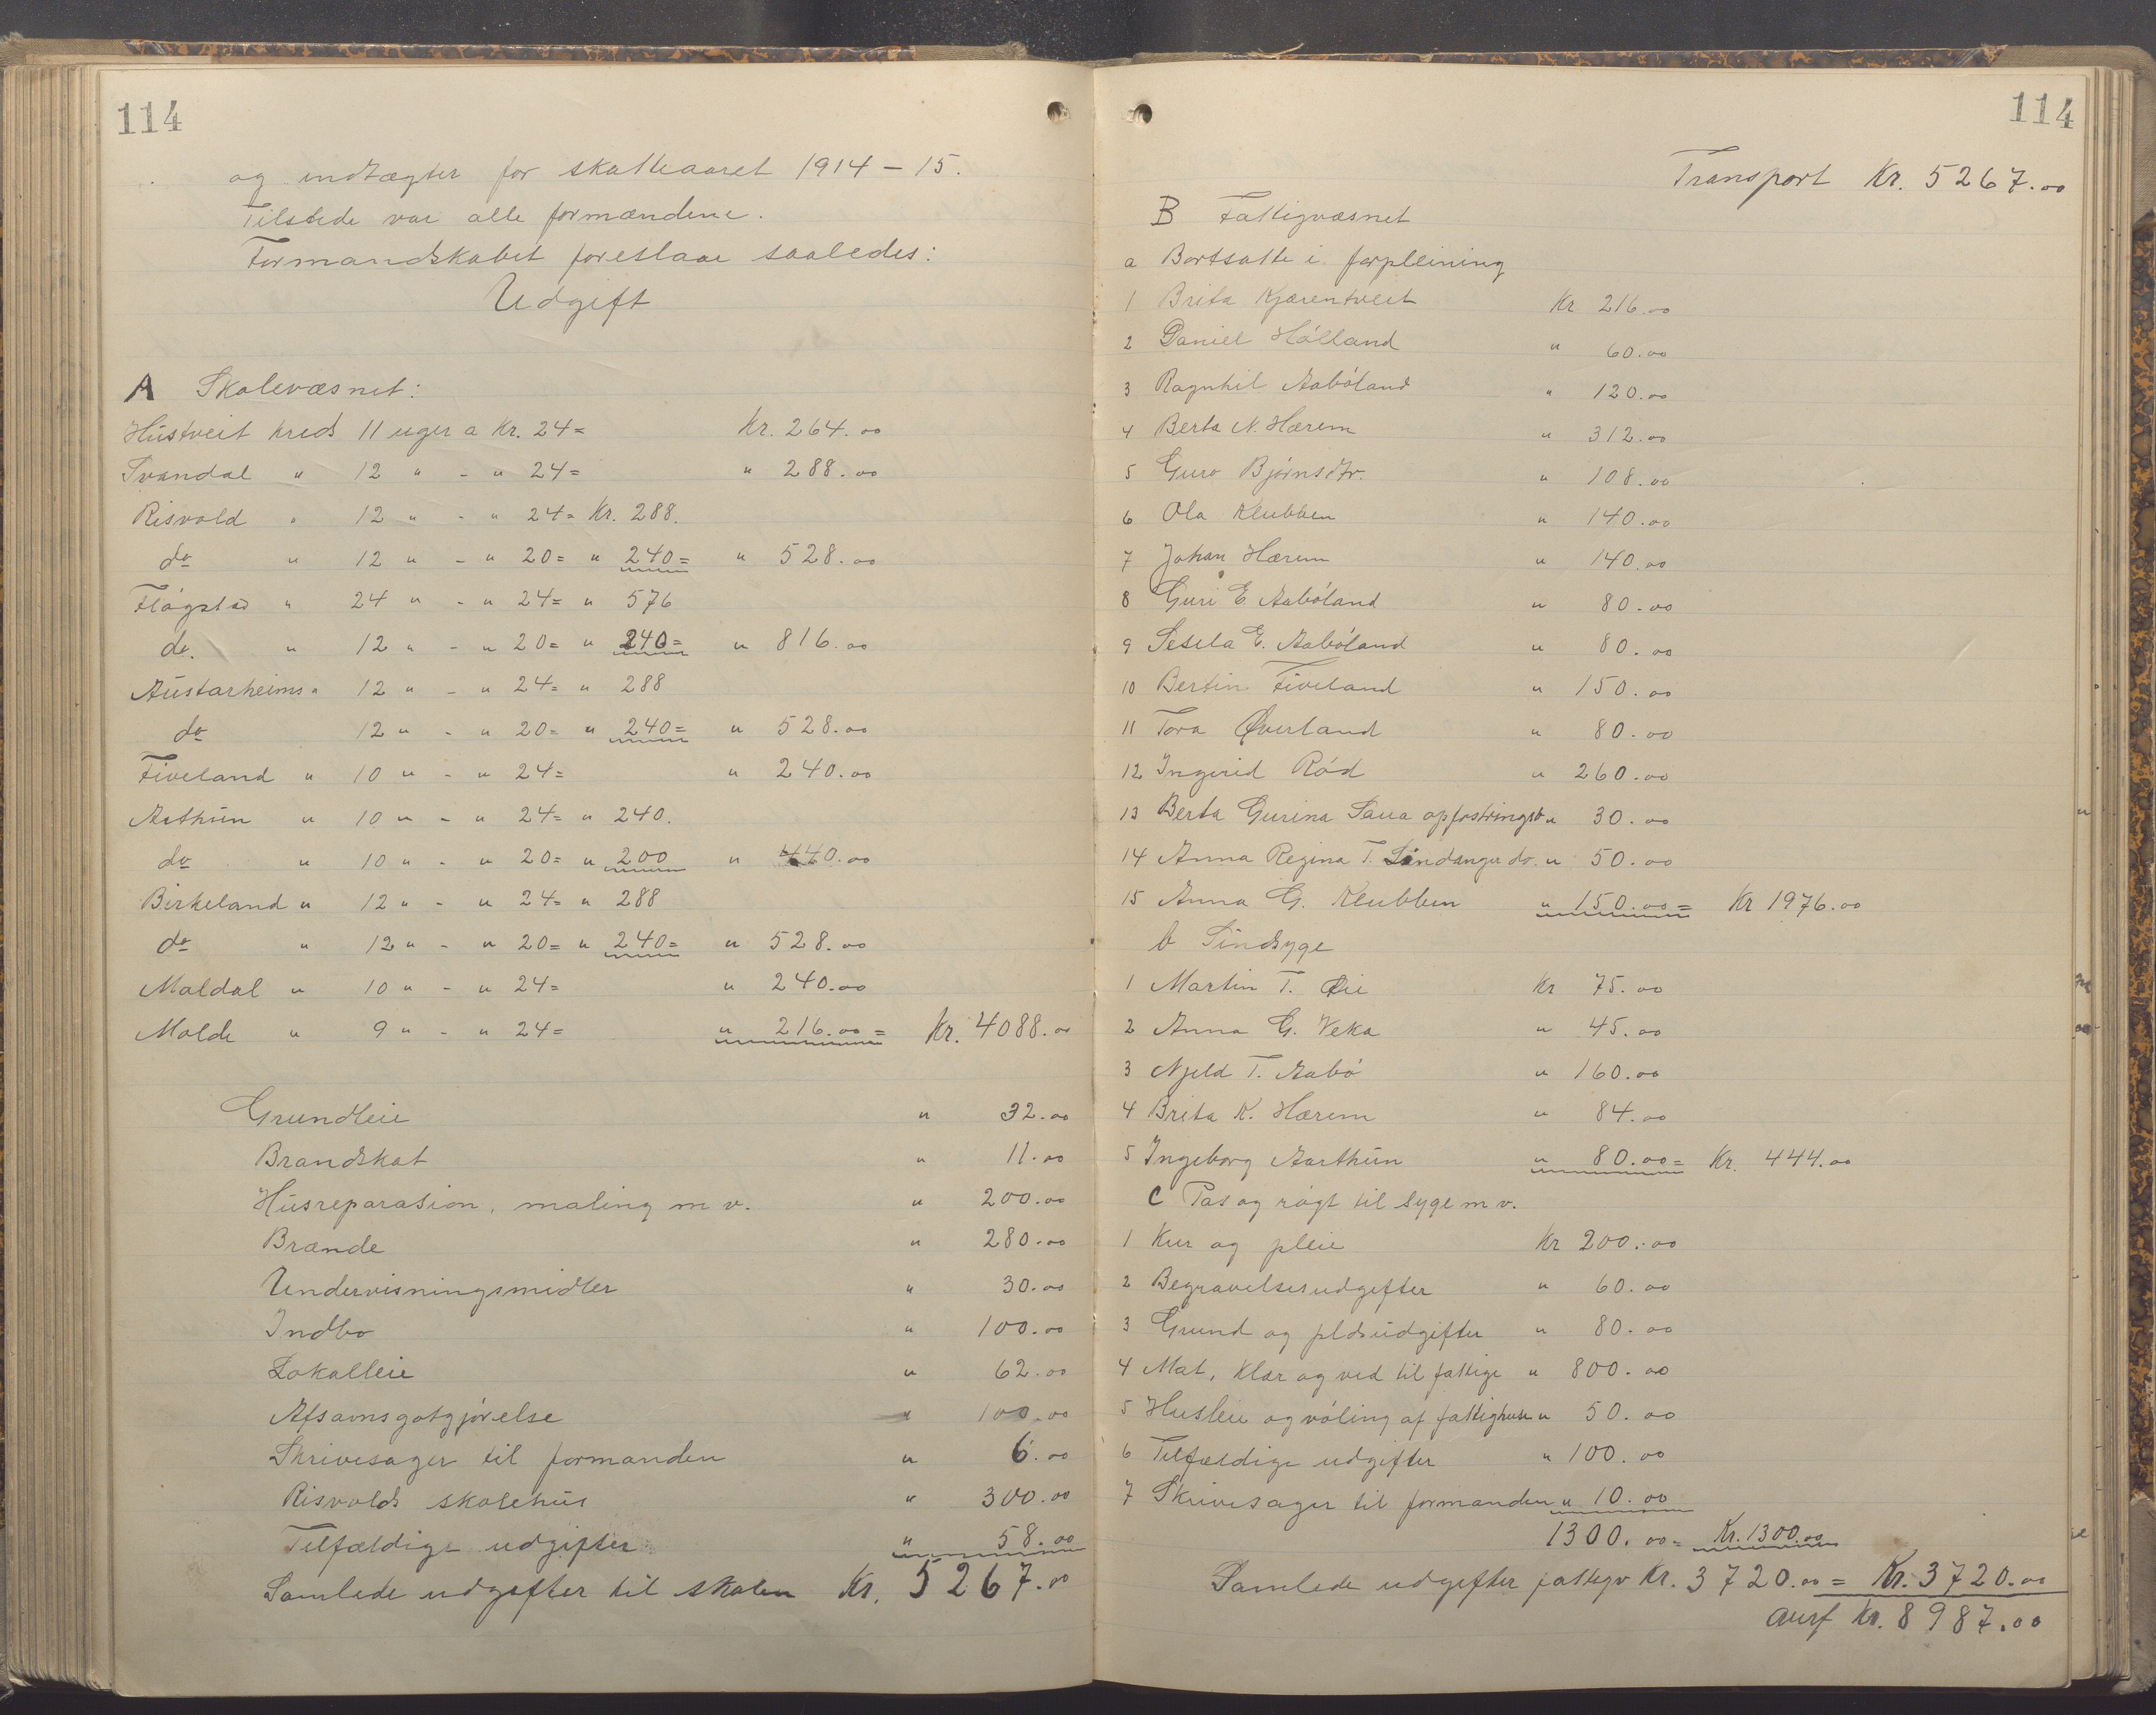 114
og indtægter for skatteaaret 1914 – 15.
Tilstede var alle formændene.
Formandskabet foreslaar saaledes:
Udgift
A Skolevæsnet:
Hustveit kreds 11 uger a Kr. 24= Kr. 264.00
Svandal " 12 " - " 24= " 288.00
Risvold " 12 " - " 24= Kr. 288.
do " 12 " - " 20= " 240= " 528.00
Fløgstad " 24 " - " 24= " 576
do. " 12 " - " 20= " 240= " 816.00
Austarheims " 12 " - " 24= " 288
do 12 " - " 20= " 240= " 528.00
Fiveland " 10 " - " 24= " 240.00
Arthun " 10 " - " 24= " 240.
do " 10 " - " 20= " 200 " 440.00
Birkeland " 12 " - " 24= " 288
do " 12 " - " 20= " 240= " 528.00
Maldal " 10 " - " 24= " 240.00
Molde " 9 " - " 24= " 216.00 = Kr. 4088.00
Grundleie " 32.00
Brandskat " 11.00
Husreparasion, maling m v. " 200.00
Brænde " 280.00
Undervisningsmidler " 30.00
Indbo " 100.00
Lokalleie " 62.00
Afsavnsgotgjørelse " 100.00
Skrivesager til formanden " 6.00
Risvolds skolehus " 300.00
Tilfældige udgifter " 58.00
Samlede udgifter til skolen Kr. 5267.00
114
Transport Kr. 5267.00
B Fattigvæsnet
a Bortsatte i forpleining
1 Brita Kjærentveit Kr 216.00
2 Daniel Hølland " 60.00
3 Ragnhil Aabøland " 120.00
4 Berta N. Hærem " 312.00
5 Guro Bjørnsdtr. " 108.00
6 Ola Klubben " 140.00
7 Johan Hærem " 140.00
8 Guri E Aabøland " 80.00
9 Sesela E. Aabøland " 80.00
10 Bertin Fiveland " 150.00
11 Tora Øverland " 80.00
12 Ingerid Rød " 260.00
13 Berta Gurina Saua opfostringsb " 30.00
14 Anna Regina T. Lindanger do. " 50.00
15 Anna G. Klubben " 150.00 = Kr 1976.00
b Sindsyge
1 Martin T. Øie Kr 75.00
2 Anna G. Veka " 45.00
3 Njeld T. Aabø " 160.00
4 Brita K. Hærem " 84.00
5 Ingeborg Aarthun " 80.00= Kr. 444.00
C Pas og røgt til syge m v.
1 Kur og pleie Kr 200.00
2 Begravelsesudgifter " 60.00
3 Grund og udgifter " 80.00
4 Mat, klær og ved til fattige " 800.00
5 Husleie og vøling af fattighuse " 50.00
6 Tilfældige udgifter " 100.00
7 Skrivesager til formanden " 10.00
1300.00= Kr. 1300.00
Samlede udgifter fattigv Kr. 3720.00 = Kr. 3720.00
Kr. 8987.00